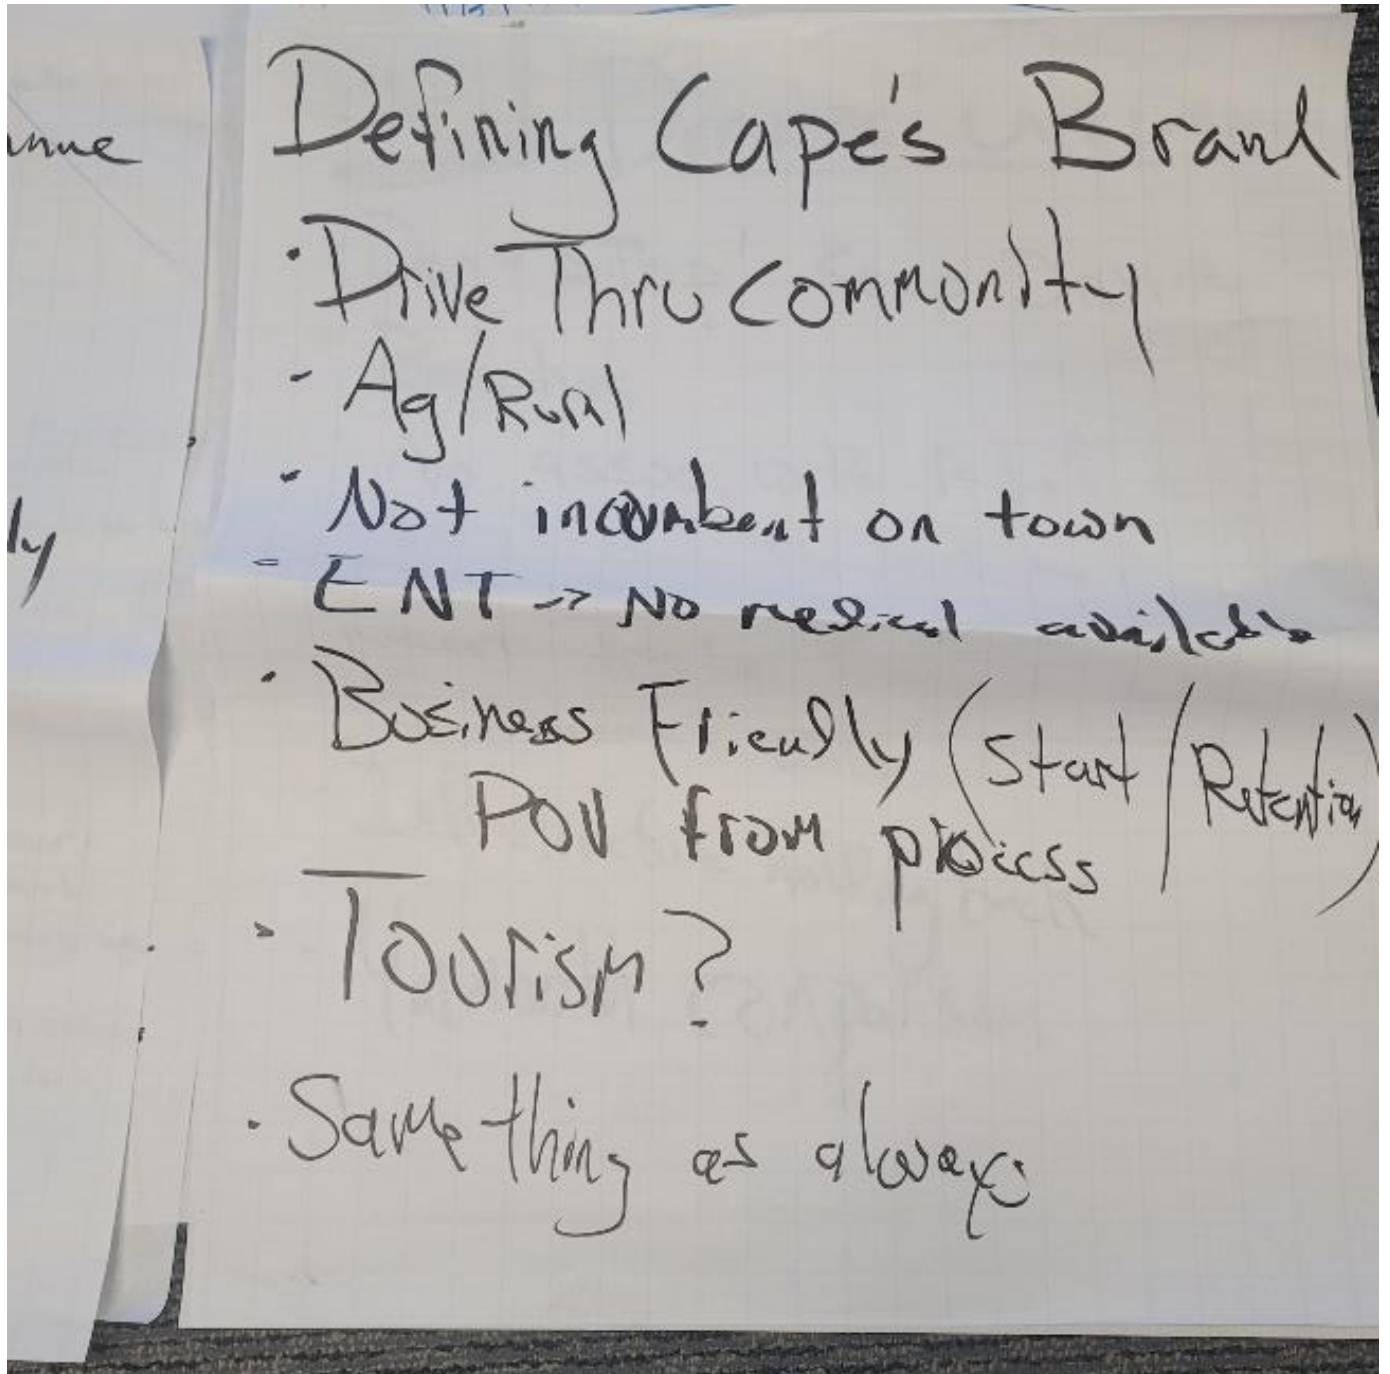 Defining Cape's Brand
· Drive Thru Community
- Ag/Rural
- Not incumbent on town
- ENT -> No medical available
· Business Friendly (Start/Retention)
POV from process
· Tourism?
· Same thing as always